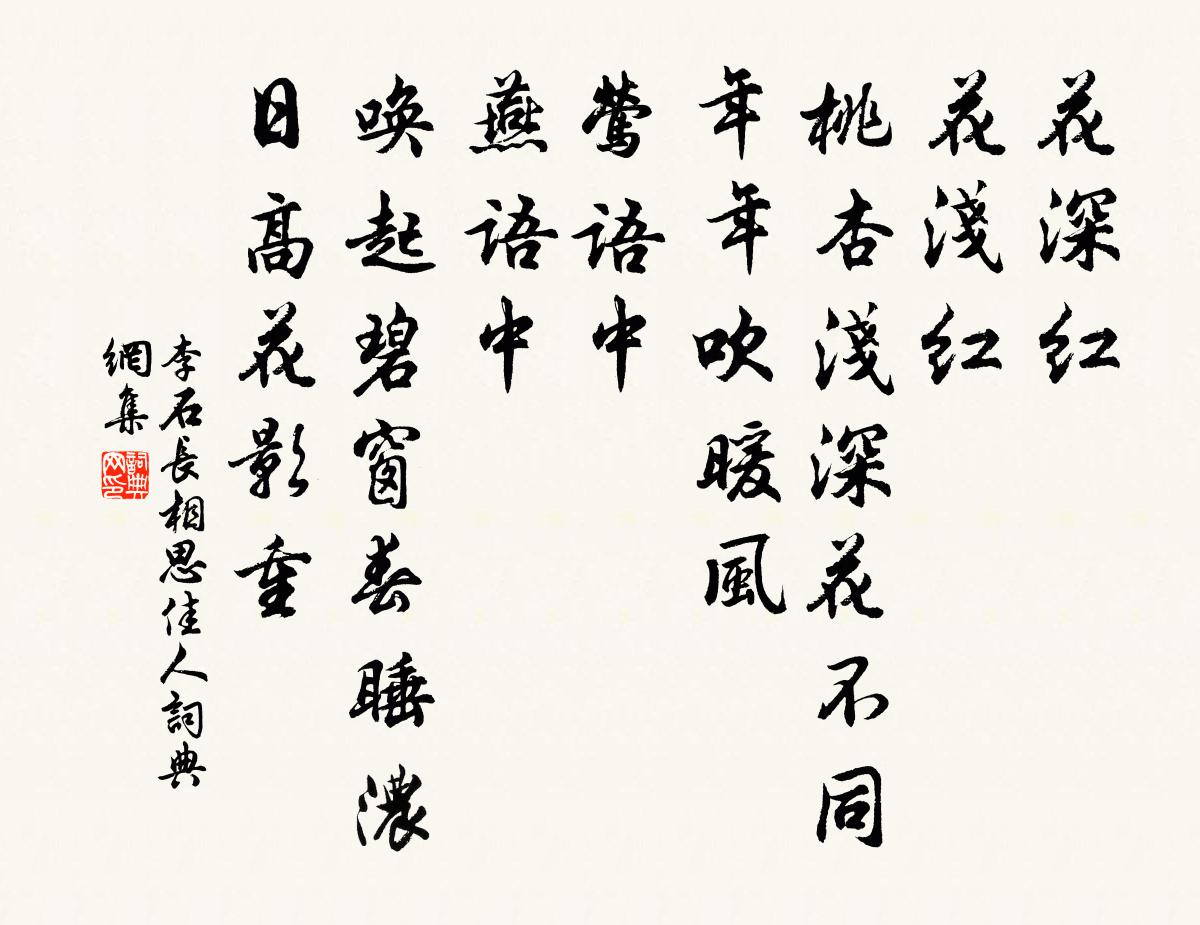 花深紅
花淺紅
桃杏淺深花不同
年年吹暖風
鶯語中
燕語中
喚起碧窗春睡濃
日高花影重
李石長相思佳人詞典
網集
詞典
网印